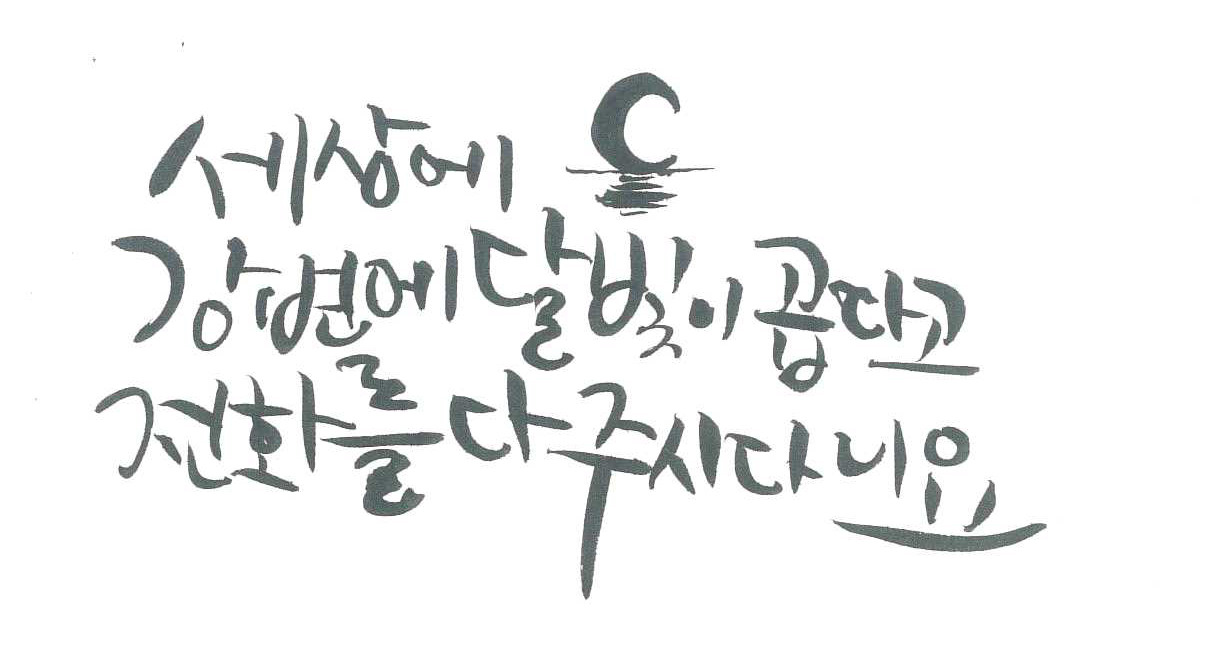 세상에
강변에 달빛이 곱다고
전화를 다 주시다니요